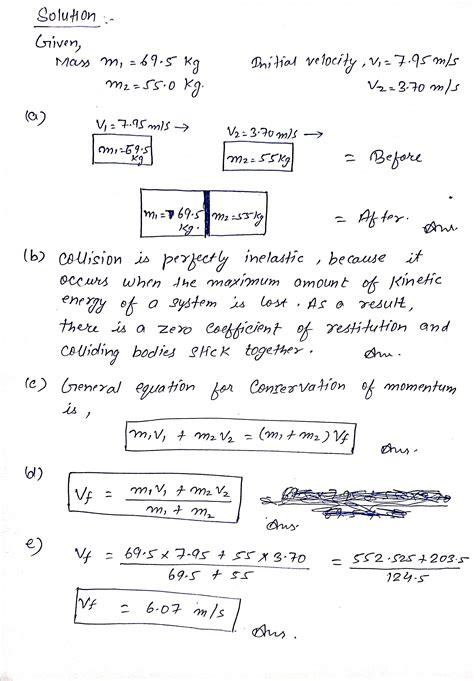 Solution :-
Given,
Mass m₁ = 69.5 Kg Initial velocity, V₁ = 7.95 m/s
m₂ = 55.0 Kg. V₂ = 3.70 m/s
(a)
V₁ = 7.95 m/s → V₂ = 3.70 m/s →
m₁ = 69.5 Kg m₂ = 55Kg = Before
m₁ = 69.5 Kg. m₂ = 55Kg = After. Ans.
(b) Collision is perfectly inelastic, because it
occurs when the maximum amount of Kinetic
energy of a system is lost. As a result,
there is a zero coefficient of restitution and
colliding bodies stick together. Ans.
(c) General equation for Conservation of momentum
is,
m₁V₁ + m₂V₂ = (m₁+m₂)Vf
Ans.
(d)
Vf = m₁V₁ + m₂V₂ / m₁ + m₂
Ans.
e) Vf = 69.5 × 7.95 + 55 × 3.70 / 69.5 + 55 = 552.525 + 203.5 / 124.5
Vf = 6.07 m/s
Ans.